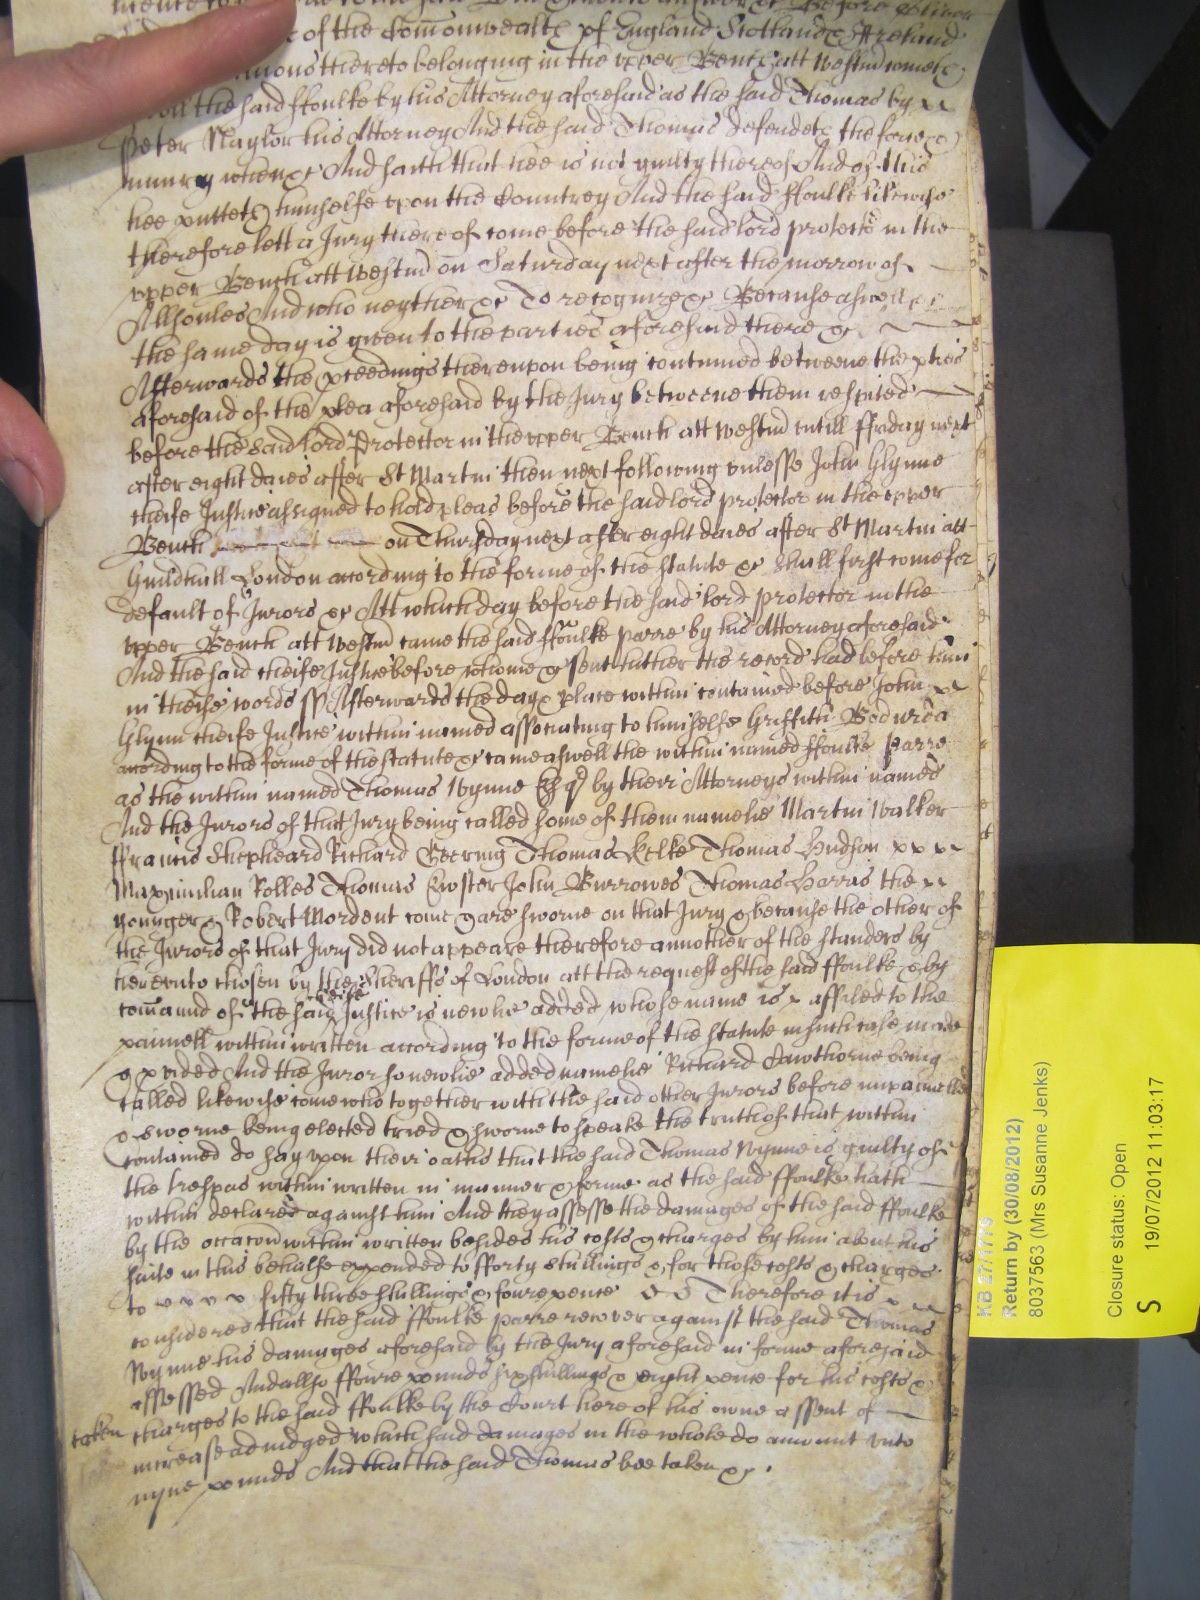 of the Com̃onwealth of England Scotland & Ireland
thereto belonging in the vpper Bench att Westmr
the said ffoulke by his Attorney aforesaid as the said Thomas by
Peter Naylor his Attorney And the said Thomas defendeth the force &
iniury when &c And saith that hee is not guilty thereof And of this
hee putteth himselfe vpon the Countrey And the said ffoulke likewise
therefore lett a Jury thereof come before the said lord protector in the
vpper Bench att Westmr on Saturday next after the morrow of
Allsoules And who neyther &c To recognize &c Because aswell &c
the same day is given to the parties aforesaid there &c
Afterwards the pceedings therevpon being continued betweene the pties
aforesaid of the plea aforesaid by the Jury betweene them respited
before the said lord Protector in the vpper Bench att Westmr vntill ffriday next
after eight daies after St Martin then next following vnlesse John Glynne
cheife Justice assigned to hold pleas before the said lord protector in the vpper
Bench on Thursday next after eight daies after St Martin att
Guildhall London according to the forme of the statute &c shall first come for
default of Jurors &c Att which day before the said lord protector in the
vpper Bench att Westmr came the said ffoulke parre by his Attorney aforesaid
And the said cheife Justice before whome &c sent hither the record had before him
in theise words ss Afterwards the day & place within contained before John
Glynn cheife Justice within named associating to himselfe Griffith Bodwrda
according to the forme of the statute &c came aswell the within named ffoulke Parre
as the within named Thomas Wynne Esqr by their Attorneys within named
And the Jurors of that Jury being called some of them namelie Martin Walker
ffrancis Shepheard Richard Geering Thomas Kelke Thomas Hudson
Maximilian Rolles Thomas Ewster John Burrowes Thomas Harris the
younger & Robert Mordent come & are sworne on that Jury & because the other of
the Jurors of that Jury did not appeare therefore annother of the standers by
herevnto chosen by the Sheriffs of London att the request of the said ffoulke & by
com̃aund of the said cheife Justice is newlie added whose name is affiled to the
pannell within written according to the forme of the statute in such case made
& pvided And the Juror so newlie added namelie Richard Cawthorne being
called likewise come who together with the said other Jurors before impannelled
& sworne being elected tried & sworne to speake the truth of that within
contained do say vpon their oaths that the said Thomas Wynne is guilty of
the trespas within written in manner & forme as the said ffoulke hath
within declared against him And they assesse the damages of the said ffoulke
by the occac̃on within written besides his costs & charges by him about his
suite in this behalfe expended to fforty shillings & for those costs & charges
to fifty three shillings & foure pence Therefore it is
considered that the said ffoulke parre recover against the said Thomas
Wynne his damages aforesaid by the Jury aforesaid in forme aforesaid
assessed And allso ffoure pounds six shillings & eight pence for his costs &
taken charges to the said ffoulke by the Court here of his owne assent of
increase adiudged which said damages in the whole do amount vnto
nyne pounds And that the said Thomas bee taken &c.
KB 27/1775
Return by (30/08/2012)
8037563 (Mrs Susanne Jenks)
Closure status: Open
S 19/07/2012 11:03:17